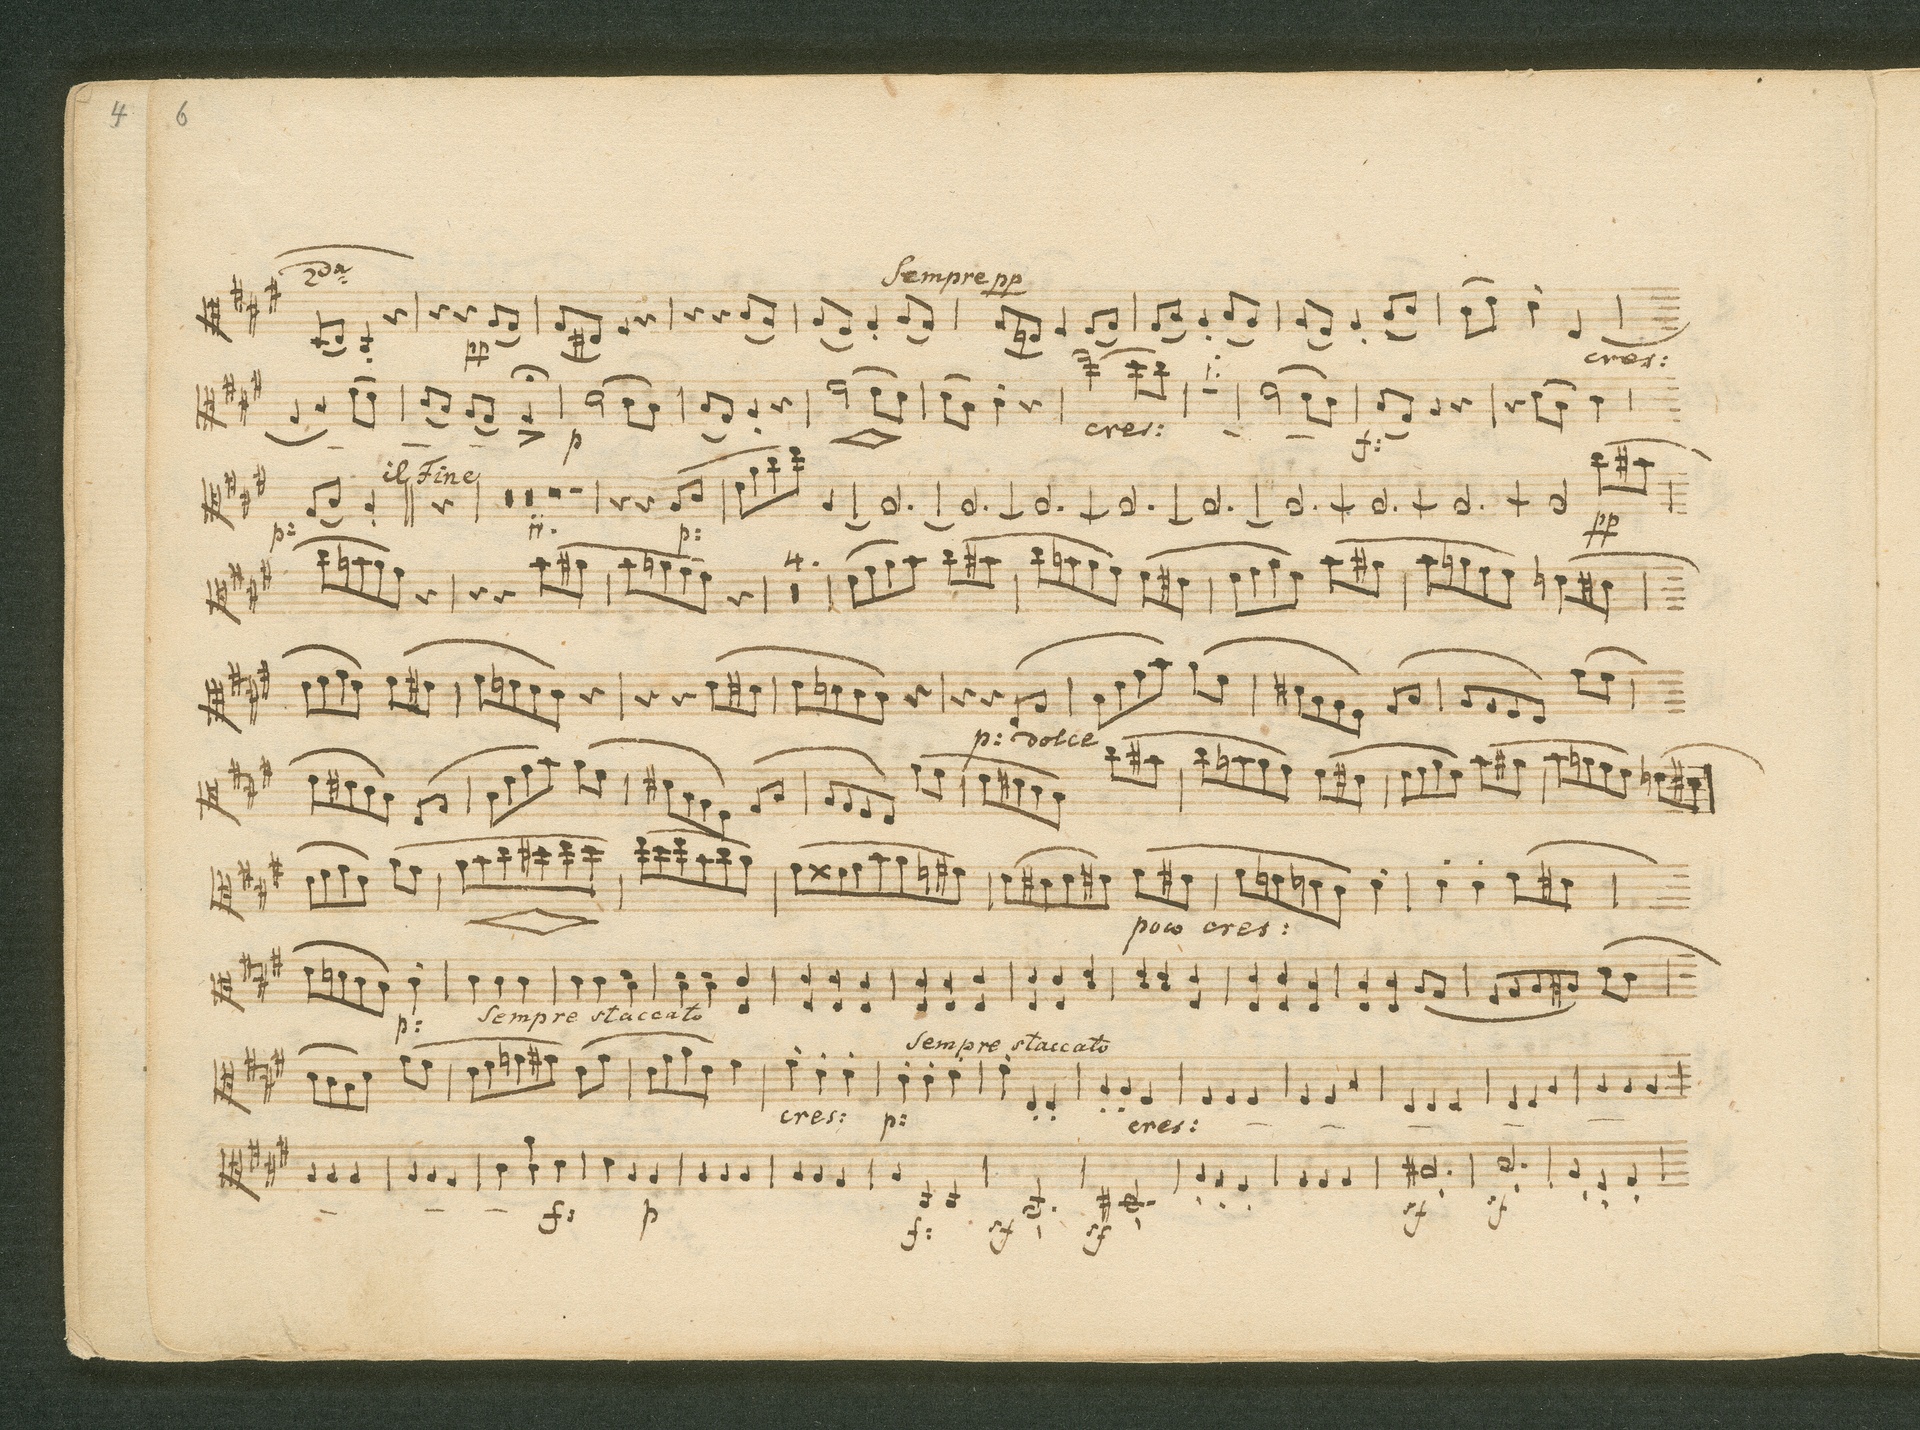 4 6
2da
Sempre pp
pp
cres:
p cres: f:
il Fine
p: 11. p: pp
4.
p: dolce
poco cres:
p: Sempre staccato
Sempre staccato
cres: p: cres:
f: p f: sf sf sf sf